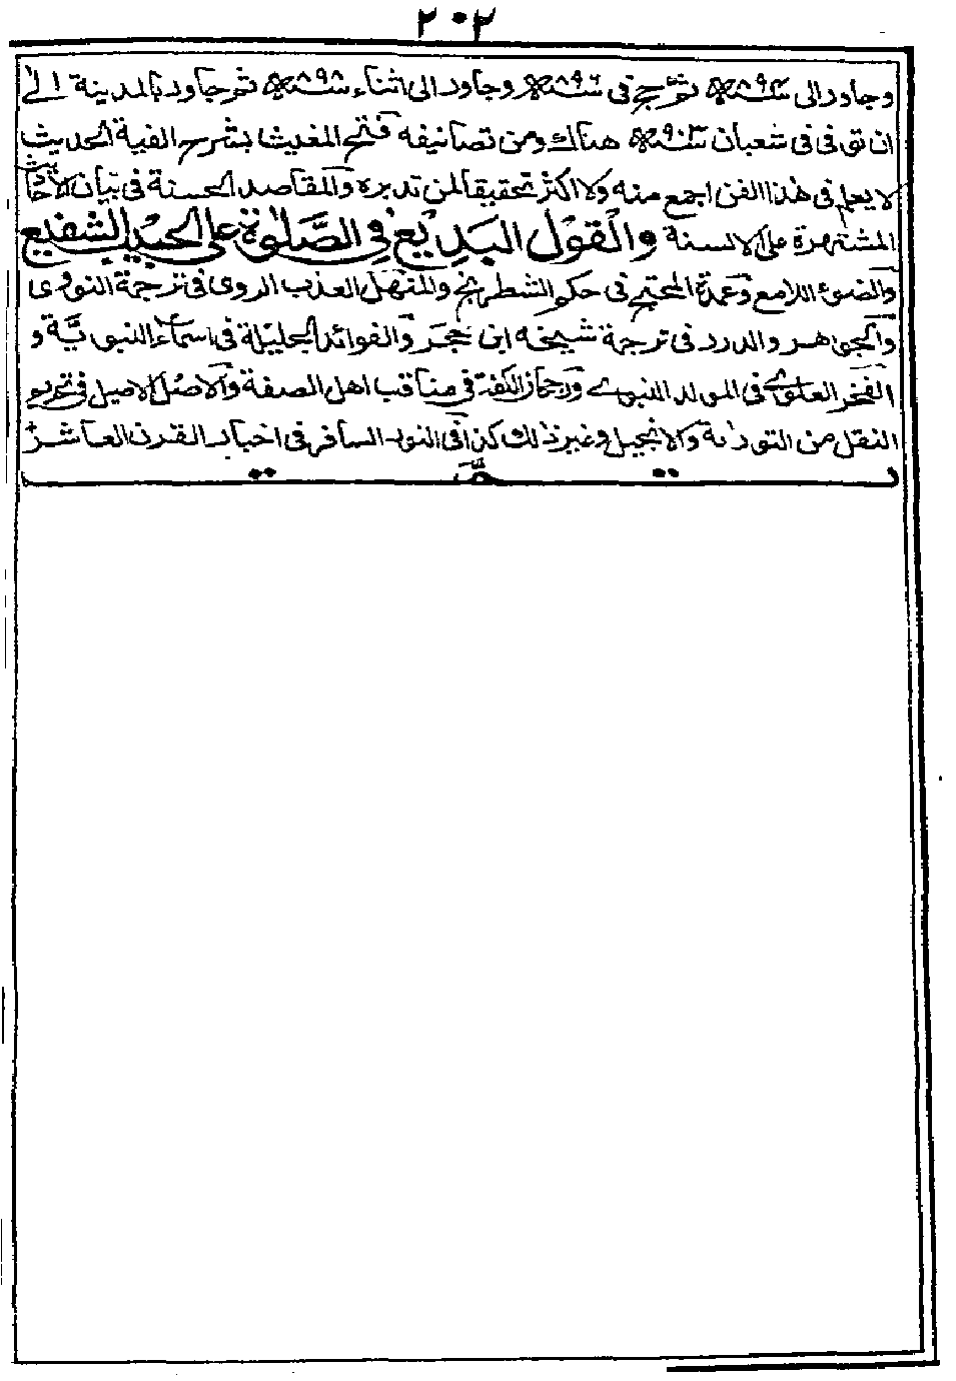 ٢٠٢
وجاور الى سنة ٨٩٤ ثم حج فى سنة ٨٩٦ وجاور الى اثناء سنة ٨٩٨ ثم جاور بالمدينة الى
ان توفى فى شعبان سنة ٩٠٣ هناك ومن تصانيفه فتح المغيث بشرح الفية الحديث
لا يعلم فى هذا الفن اجمع منه ولا اكثر تحقيقا لمن تدبره والمقاصد الحسنة فى بيان الاحاديث
المشتهرة على الالسنة والقول البديع في الصلوة على الحبيب الشفيع
والضوء اللامع وعمدة المحتج فى حكم الشطرنج والمنهل العذب الروى فى ترجمة النووى
والجواهر والدرر فى ترجمة شيخه ابن حجر والفوائد الجليلة فى اسماء النبوية و
الفخر العلوى فى المولد النبوى ورجحان الكفة فى مناقب اهل الصفة والاصل الاصيل فى تحريم
النقل من التوراة والانجيل وغير ذلك كذا فى النور السافر فى اخبار القرن العاشر
تمت